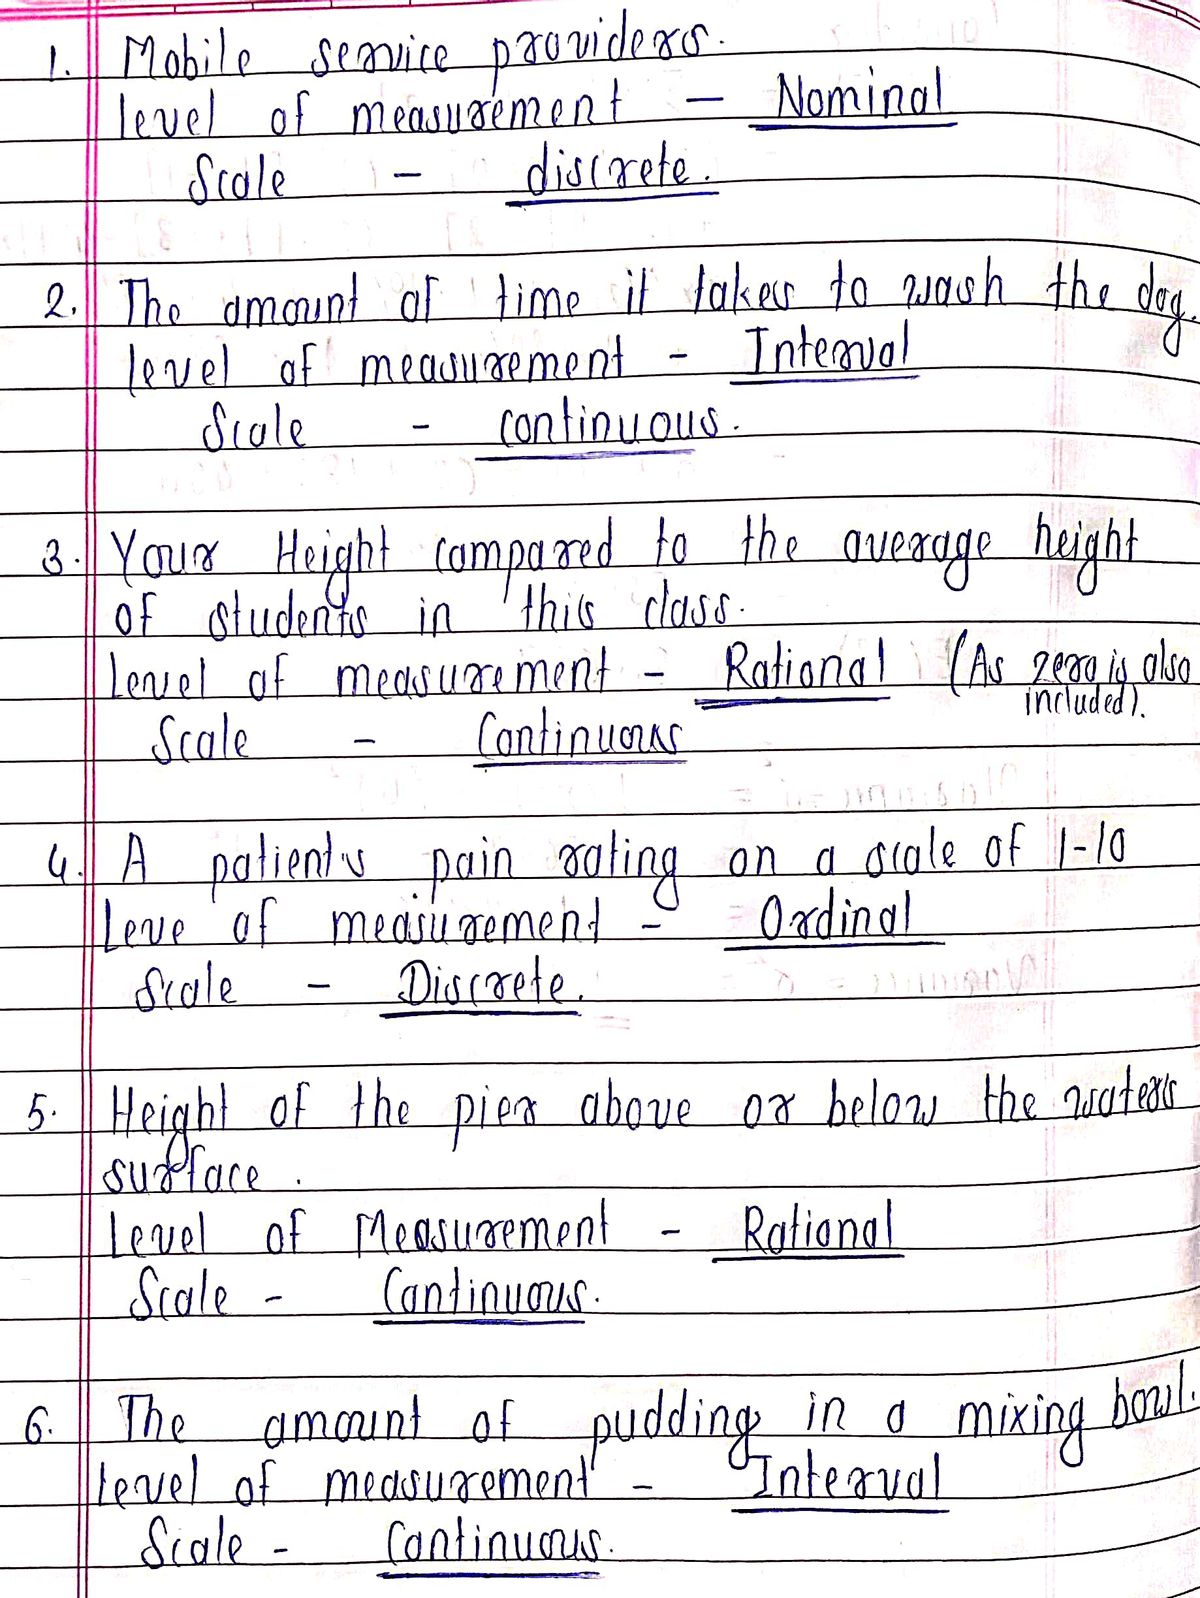 1. Mobile service providers.
level of measurement – Nominal
Scale – discrete.
2. The amount of time it takes to wash the dog.
level of measurement - Interval
Scale - continuous.
3. Your Height compared to the average height
of students in this class.
Level of measurement - Rational (As zero is also
included).
Scale - Continuous
4. A patient's pain rating on a scale of 1-10
Leve of measurement - Ordinal
Scale - Discrete.
5. Height of the pier above or below the water's
surface.
Level of Measurement - Rational
Scale - Continuous.
6. The amount of pudding in a mixing bowl.
level of measurement - Interval
Scale - Continuous.